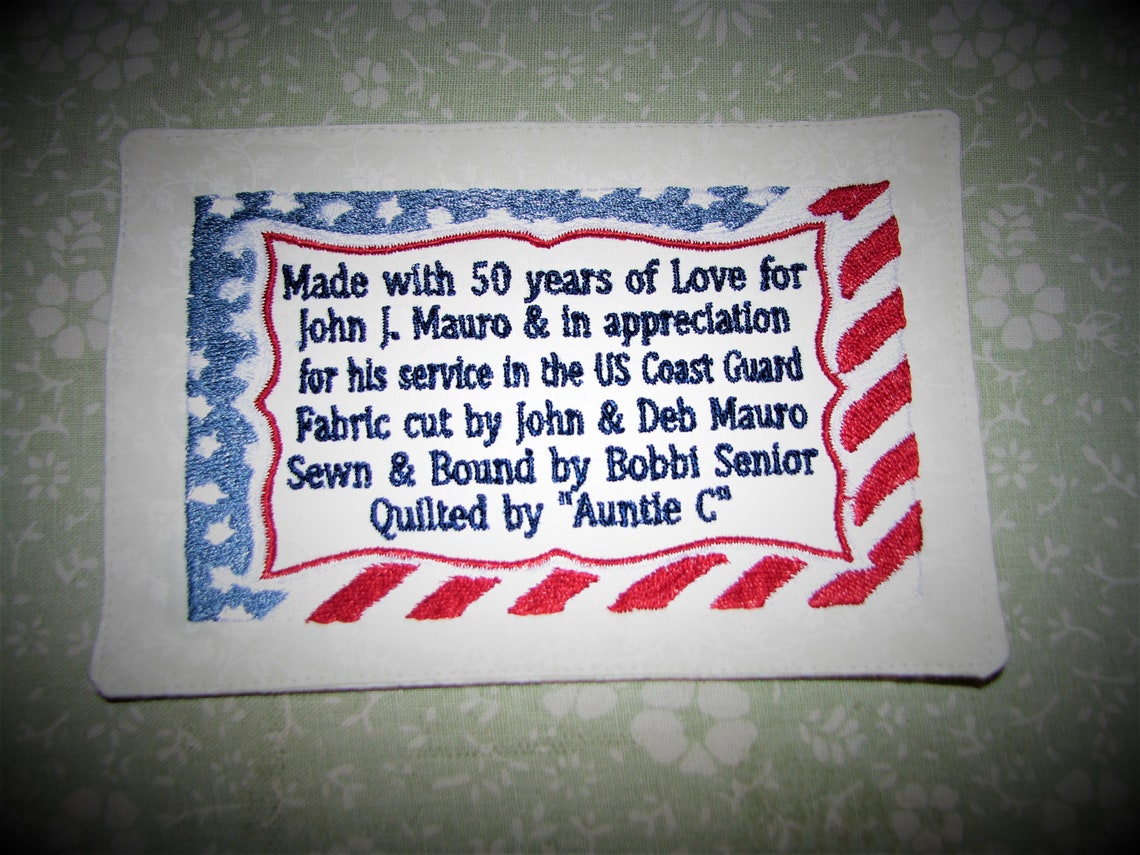 Made with 50 years of Love for
John J. Mauro & in appreciation
for his service in the US Coast Guard
Fabric cut by John & Deb Mauro
Sewn & Bound by Bobbi Senior
Quilted by "Auntie C"